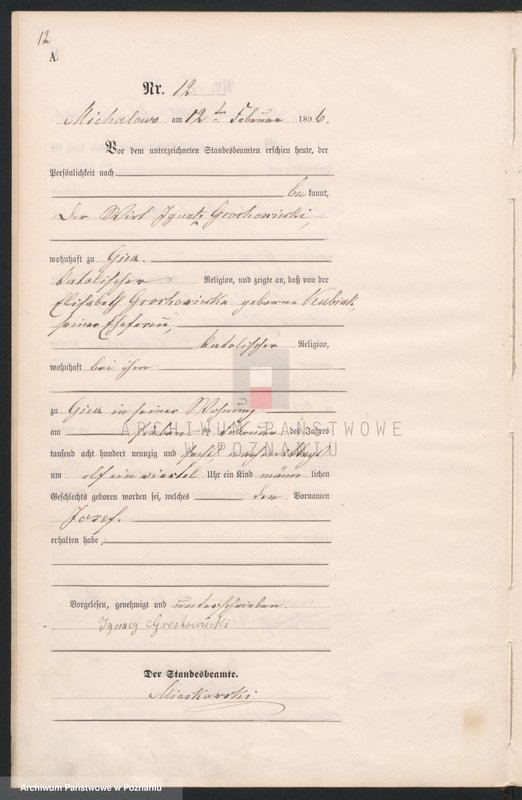 12
A.
Nr. 12.
Michalowo am 12ten Februar 1896.
Vor dem unterzeichneten Standesbeamten erschien heute, der
Persönlichkeit nach
bekannt,
der Wirt Ignatz Grochowiecki,
wohnhaft zu Giecz.
katolischer Religion, und zeigte an, daß von der
Elisabeth Grochowiecka geborene Kubiak,
seiner Ehefrau,
katolischer Religion,
wohnhaft bei ihm
zu Giecz in seiner Wohnung
am sieben ten Februar des Jahres
tausend acht hundert neunzig und sechs nachmittags
um elf ein viertel Uhr ein Kind männlichen
Geschlechts geboren worden sei, welches den Vornamen
Josef.
erhalten habe
Vorgelesen, genehmigt und unterschrieben.
Ignacy Grochowiecki
Der Standesbeamte.
Miaskowski
ARCHIWUM PAŃSTWOWE
W POZNANIU
Archiwum Państwowe w Poznaniu